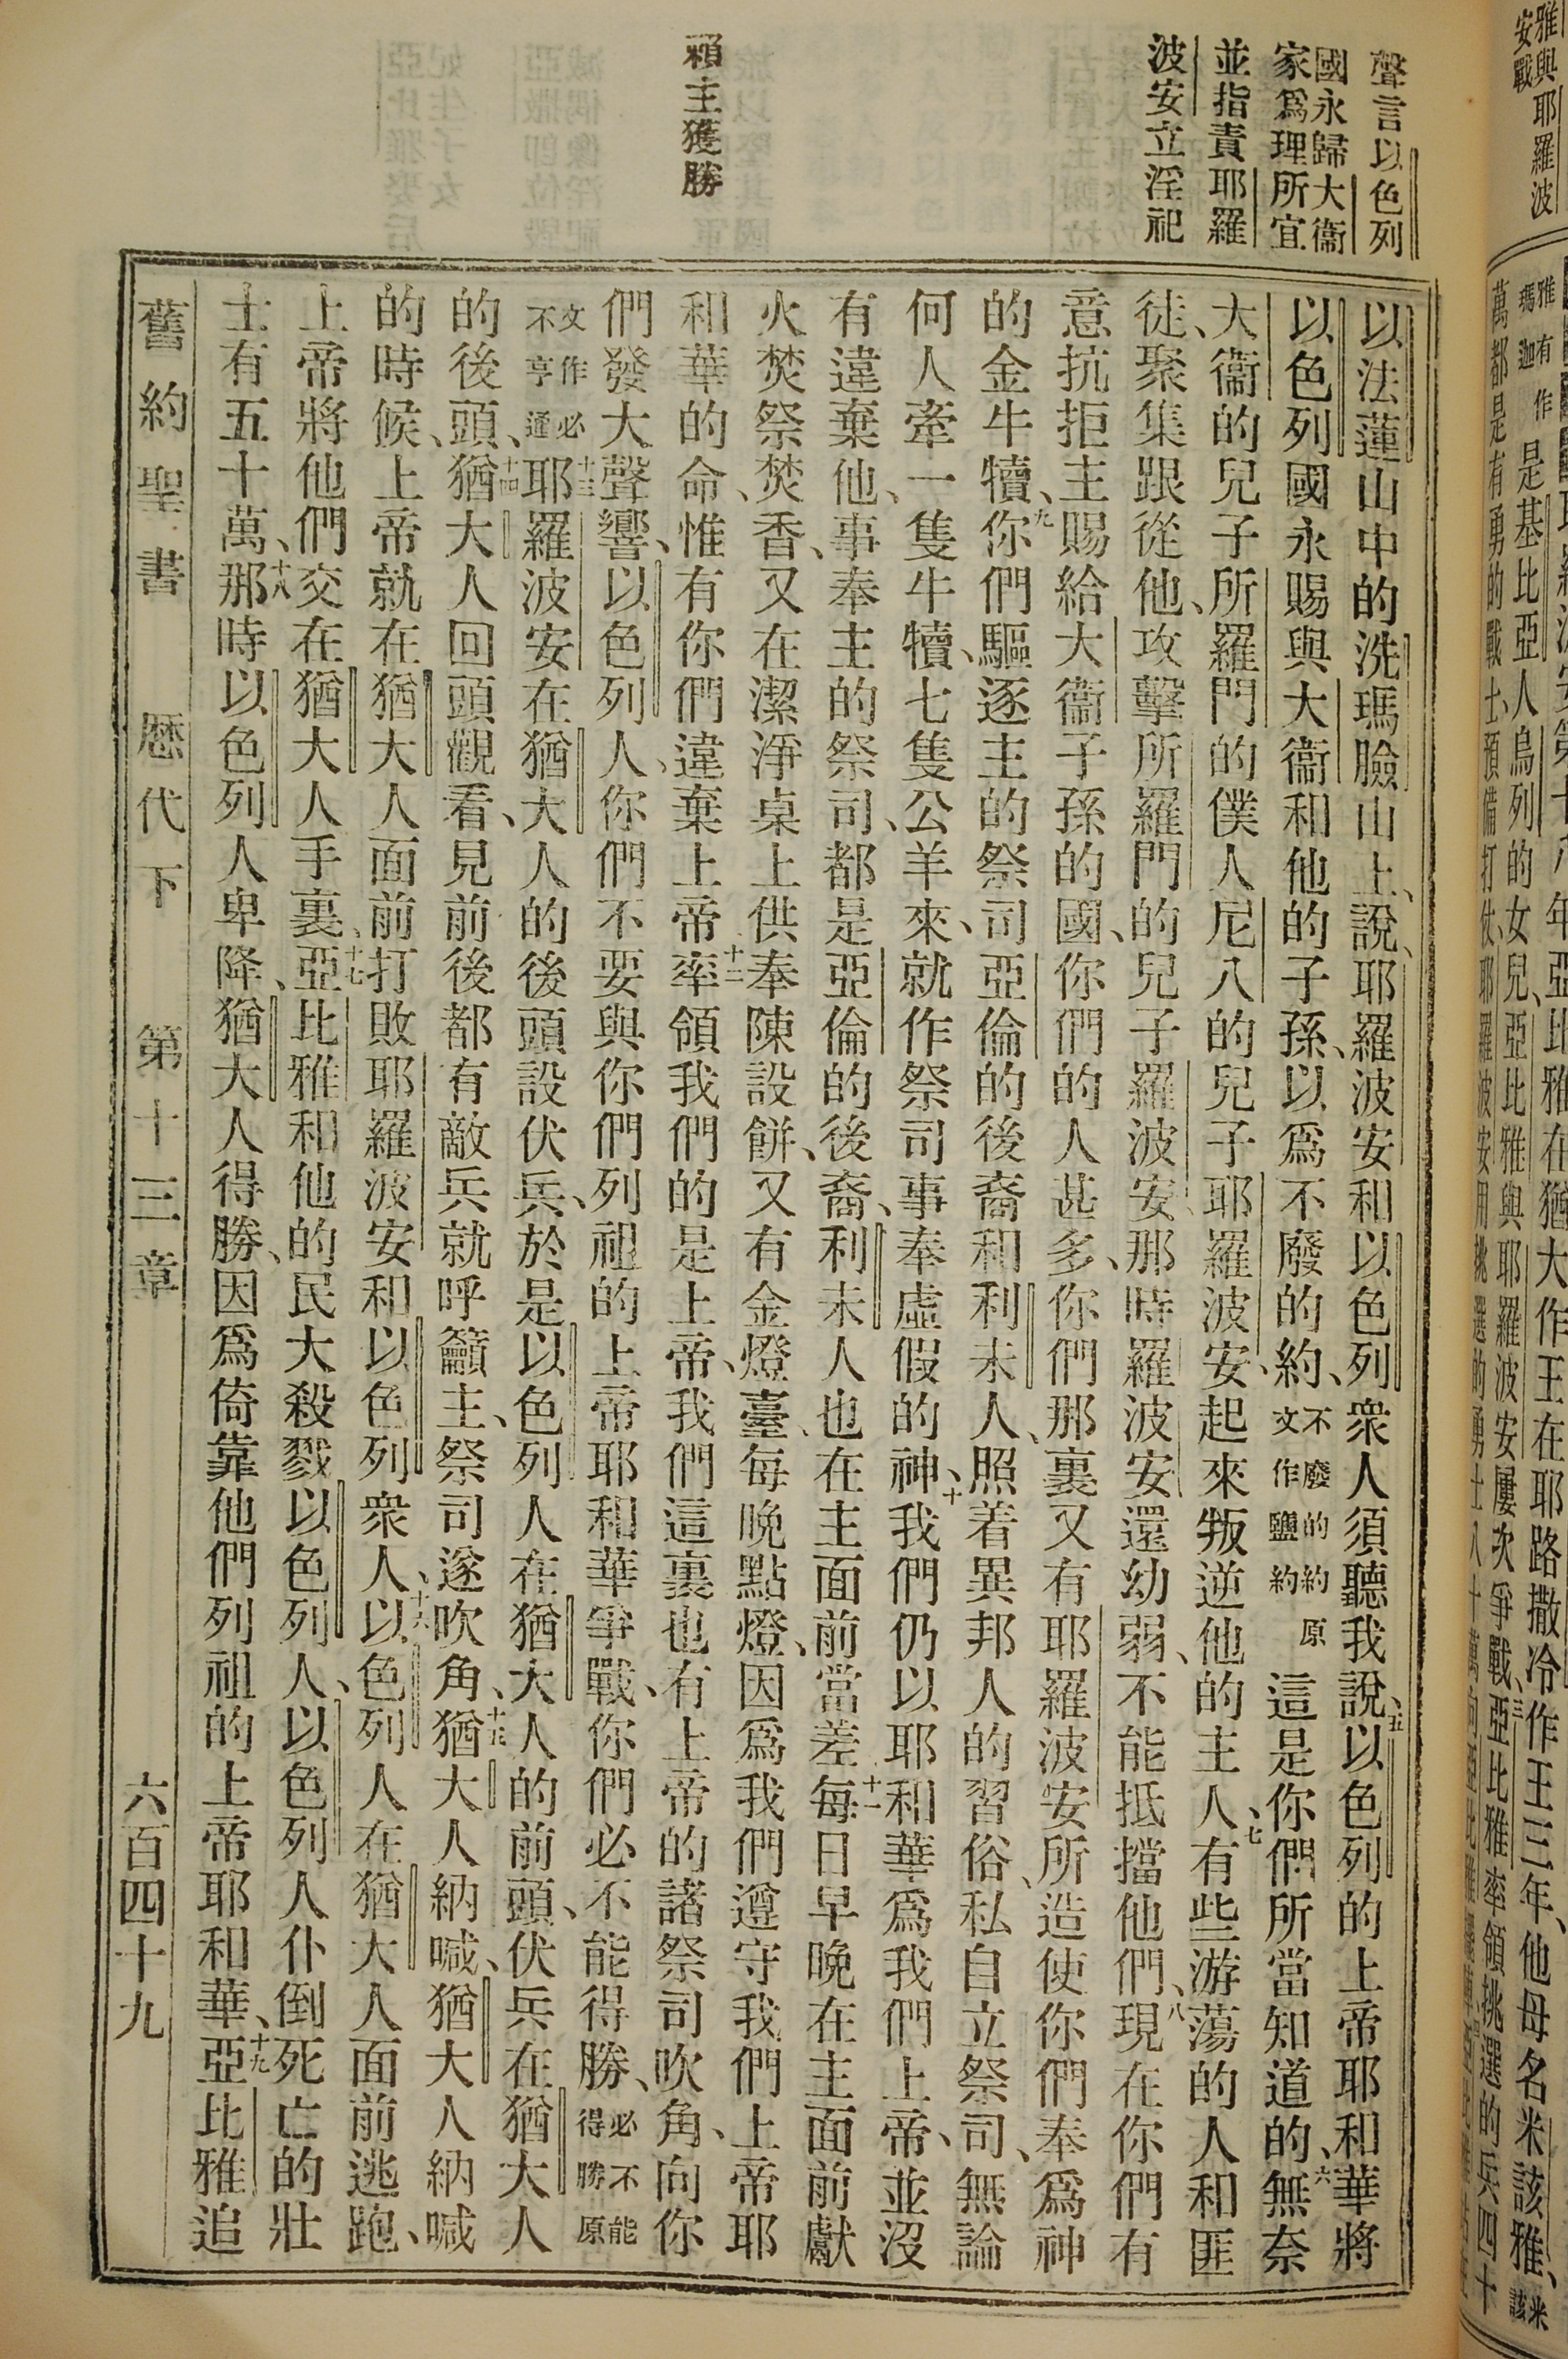 聲言以色列
國永歸大衞
家爲理所宜
並指責耶羅
波安立淫祀
賴主獲勝
以法蓮山中的洗瑪臉山上、說、耶羅波安和以色列衆人須聽我說、五以色列的上帝耶和華將
以色列國永賜與大衞和他的子孫、以爲不廢的約、不廢的約原文作鹽約這是你們所當知道的、六無奈
大衞的兒子所羅門的僕人尼八的兒子耶羅波安、起來叛逆他的主人、七有些游蕩的人和匪
徒、聚集跟從他、攻擊所羅門的兒子羅波安、那時羅波安還幼弱、不能抵擋他們、八現在你們有
意抗拒主賜給大衞子孫的國、你們的人甚多、你們那裏又有耶羅波安所造使你們奉爲神
的金牛犢、九你們驅逐主的祭司亞倫的後裔和利未人、照着異邦人的習俗、私自立祭司、無論
何人牽一隻牛犢、七隻公羊來、就作祭司事奉虛假的神、十我們仍以耶和華爲我們上帝、並沒
有違棄他、事奉主的祭司、都是亞倫的後裔、利未人也在主面前當差、十一每日早晚在主面前獻
火焚祭焚香、又在潔淨桌上供奉陳設餅、又有金燈臺、每晚點燈、因爲我們遵守我們上帝耶
和華的命、惟有你們違棄上帝、十二率領我們的是上帝、我們這裏也有上帝的諸祭司吹角、向你
們發大聲響、以色列人、你們不要與你們列祖的上帝耶和華爭戰、你們必不能得勝、必不能得勝原
文作必不亨通十三耶羅波安在猶大人的後頭設伏兵、於是以色列人在猶大人的前頭、伏兵在猶大人
的後頭、十四猶大人回頭觀看、見前後都有敵兵就呼籲主、祭司遂吹角、十五猶大人納喊、猶大人納喊
的時候、上帝就在猶大人面前打敗耶羅波安和以色列衆人、十六以色列人在猶大人面前逃跑、
上帝將他們交在猶大人手裏、十七亞比雅和他的民大殺戮以色列人、以色列人仆倒死亡的壯
士有五十萬、十八那時以色列人卑降、猶大人得勝、因爲倚靠他們列祖的上帝耶和華、十九亞比雅追
舊約聖書 歷代下 第十三章 六百四十九